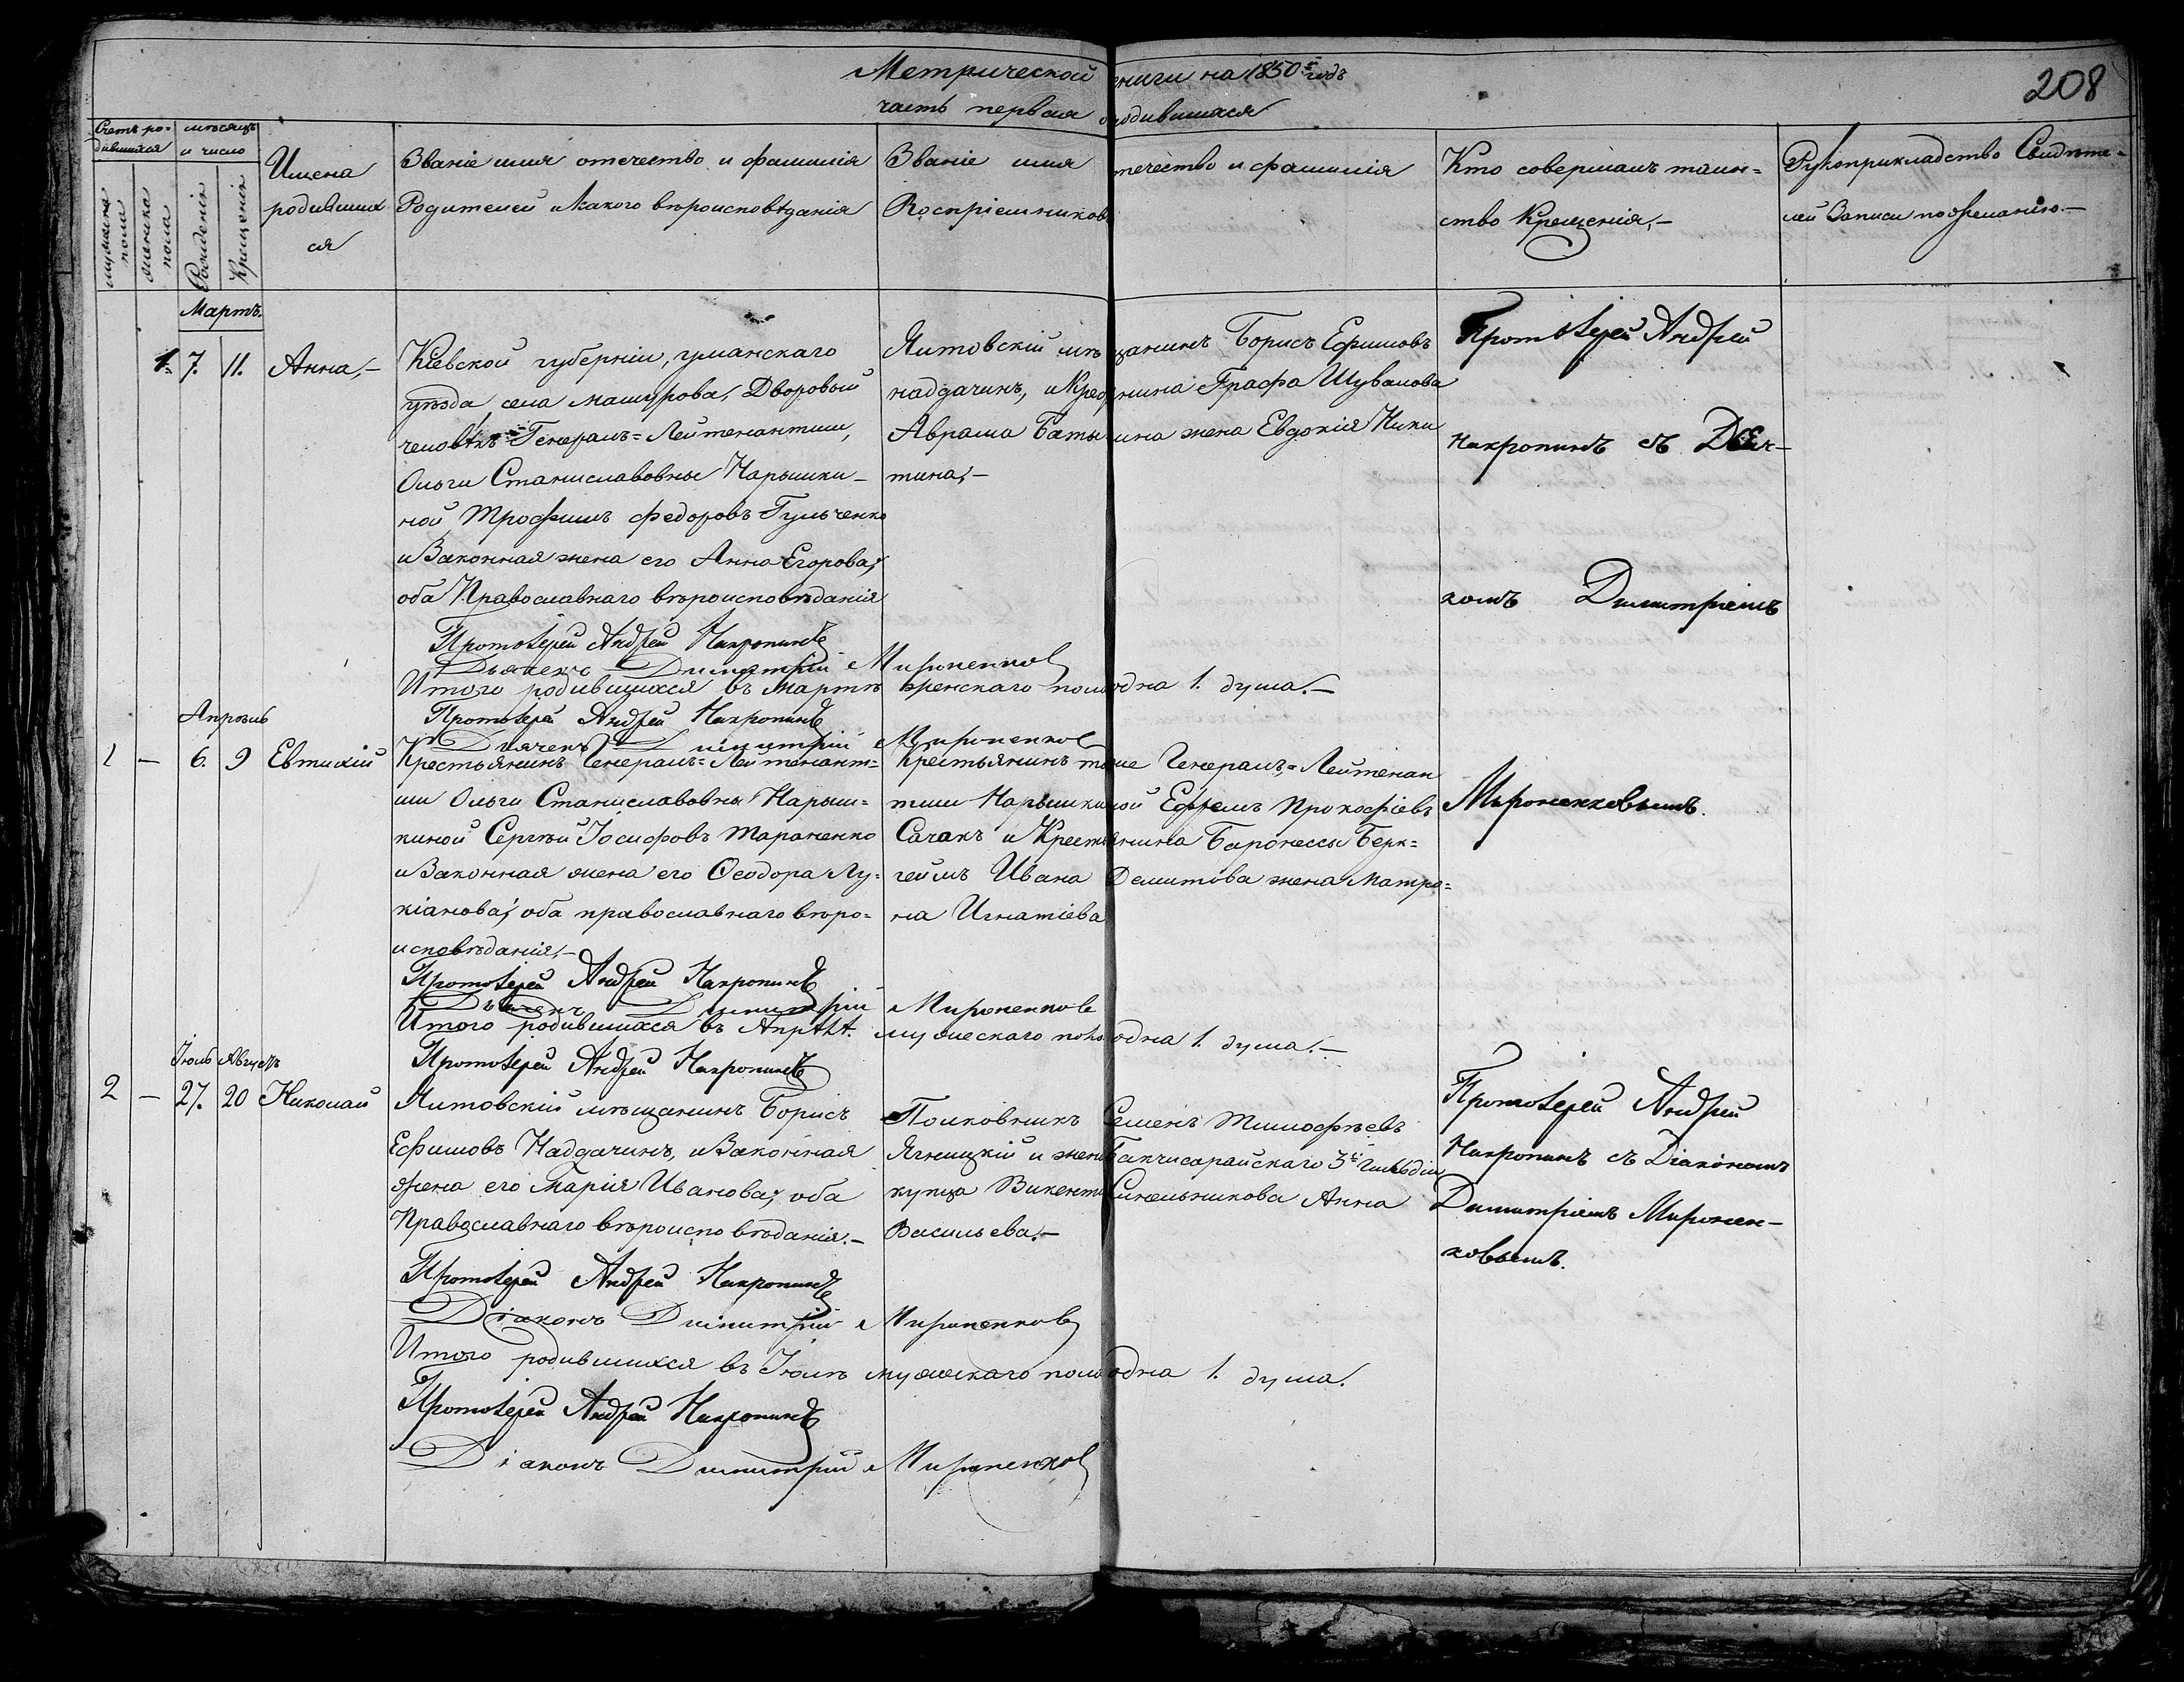 Метрической книги на 1850й годъ
208
часть первая о родившихся
Счетъ ро-
дившихся
мѣсяцъ
и число
мужеска
пола
женска
пола
Рожденія
Крещенія
Имена
родивших
ся
Званіе имя отечество и фамилія
Родителей и какого вѣроисповѣданія
Званіе имя отечество и фамилія
Воспріемниковъ
Кто совершалъ таин=
ство Крещенія,—
Рукоприкладство Свидѣте=
лей Записи по желанію.—
Мартъ.
1. 7. 11. Анна,—
Кіевской губерніи, уманскаго
уѣзда, села машурова, Дворовый
человѣкъ Генералъ=Лейтенантши,
Ольги Станиславовны Нарышки-
ной Трофимъ Федоровъ Гульченко
и Законная жена его Анна Егорова;
оба Православнаго вѣроисповѣданія
Ялтовскій мѣщанинъ Борисъ Ефимовъ
надгачинъ, и Крестьянина Графа Шувалова
Аврама Батышна жена Евдокія Ники
тина;—
Протоіерей Андрей
Накропинъ съ Дья-
комъ Димитріемъ
Мироненковымъ.
Протоіерей Андрей Накропинъ
Дьячекъ Димитрій Мироненковъ
Итого родившихся въ мартѣ женскаго пола одна 1. душа.—
Протоіерей Андрей Накропинъ
Дьячекъ Димитрій Мироненковъ
Апрѣль
1 — 6. 9 Евтихій
Крестьянинъ Генералъ=Лейтенант=
ши Ольги Станиславовны Нарыш=
киной Сергѣй Іосифовъ Тараненко
и Законная жена его Ѳеодора Лу=
кіанова; оба православнаго вѣро=
исповѣданія,—
Крестьянинъ тоже Генералъ=Лейтенан
тши Нарышкиной Ефремъ Прокофіевъ
Сачакъ и Крестьянина Баронессы Берк=
геймъ Ивана Демитова жена Матро=
на Игнатіева
Протоіерей Андрей Накропинъ
Дьячекъ Димитрій Мироненковъ
Итого родившихся въ Апрѣлѣ. мужескаго пола одна 1. душа.—
Протоіерей Андрей Накропинъ
Іюль Августъ
2 — 27. 20 Николай
Ялтовскій мѣщанинъ Борисъ
Ефимовъ Надгачинъ, и Законная
жена его Марія Иванова; оба
Православнаго вѣроисповѣданія.—
Полковникъ Семенъ Тимофѣевъ
Ягницкій и жена Бакчисарайскаго 3й Гильдіи
купца Викентія Синельникова Анна
Васильева.—
Протоіерей Андрей
Накропинъ съ Діакономъ
Димитріемъ Миронен-
ковымъ.
Протоіерей Андрей Накропинъ
Діаконъ Димитрій Мироненковъ
Итого родившихся въ Іюлѣ мужескаго пола одна 1. душа.
Протоіерей Андрей Накропинъ
Діаконъ Димитрій Мироненковъ